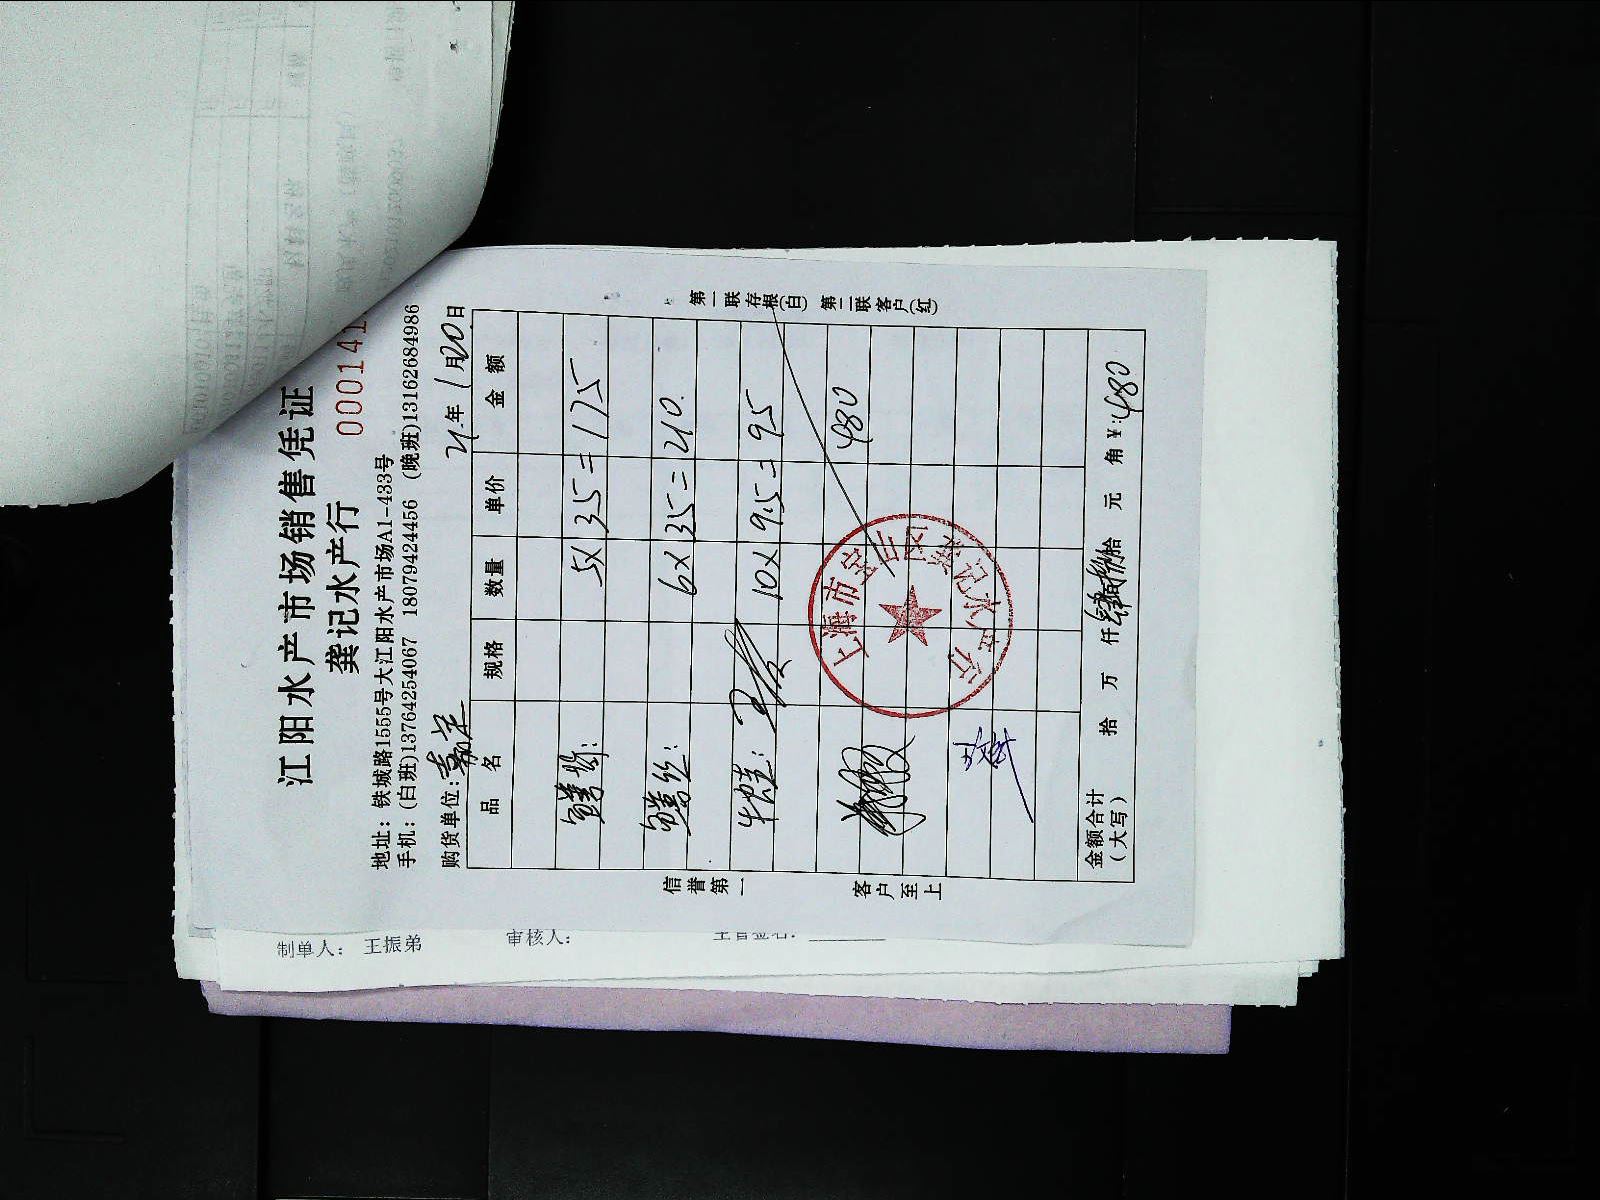 江阳水产市场销售凭证
龚记水产行 000141
地址：铁城路1555号大江阳水产市场A1-433号
手机：(白班)13764254067 18079424456 (晚班)13162684986
购货单位：嘉定 21年1月20日
品名 规格 数量 单价 金额
5×35=175
鳝丝： 6×35=210.
牛蛙： 10×9.5=95
480
金额合计（大写） 拾 万 仟 肆佰捌拾 元 角 ¥:480
信誉第一 客户至上
第一联存根(白) 第二联客户(红)
上海市宝山区龚记水产行
制单人： 王振弟 审核人：